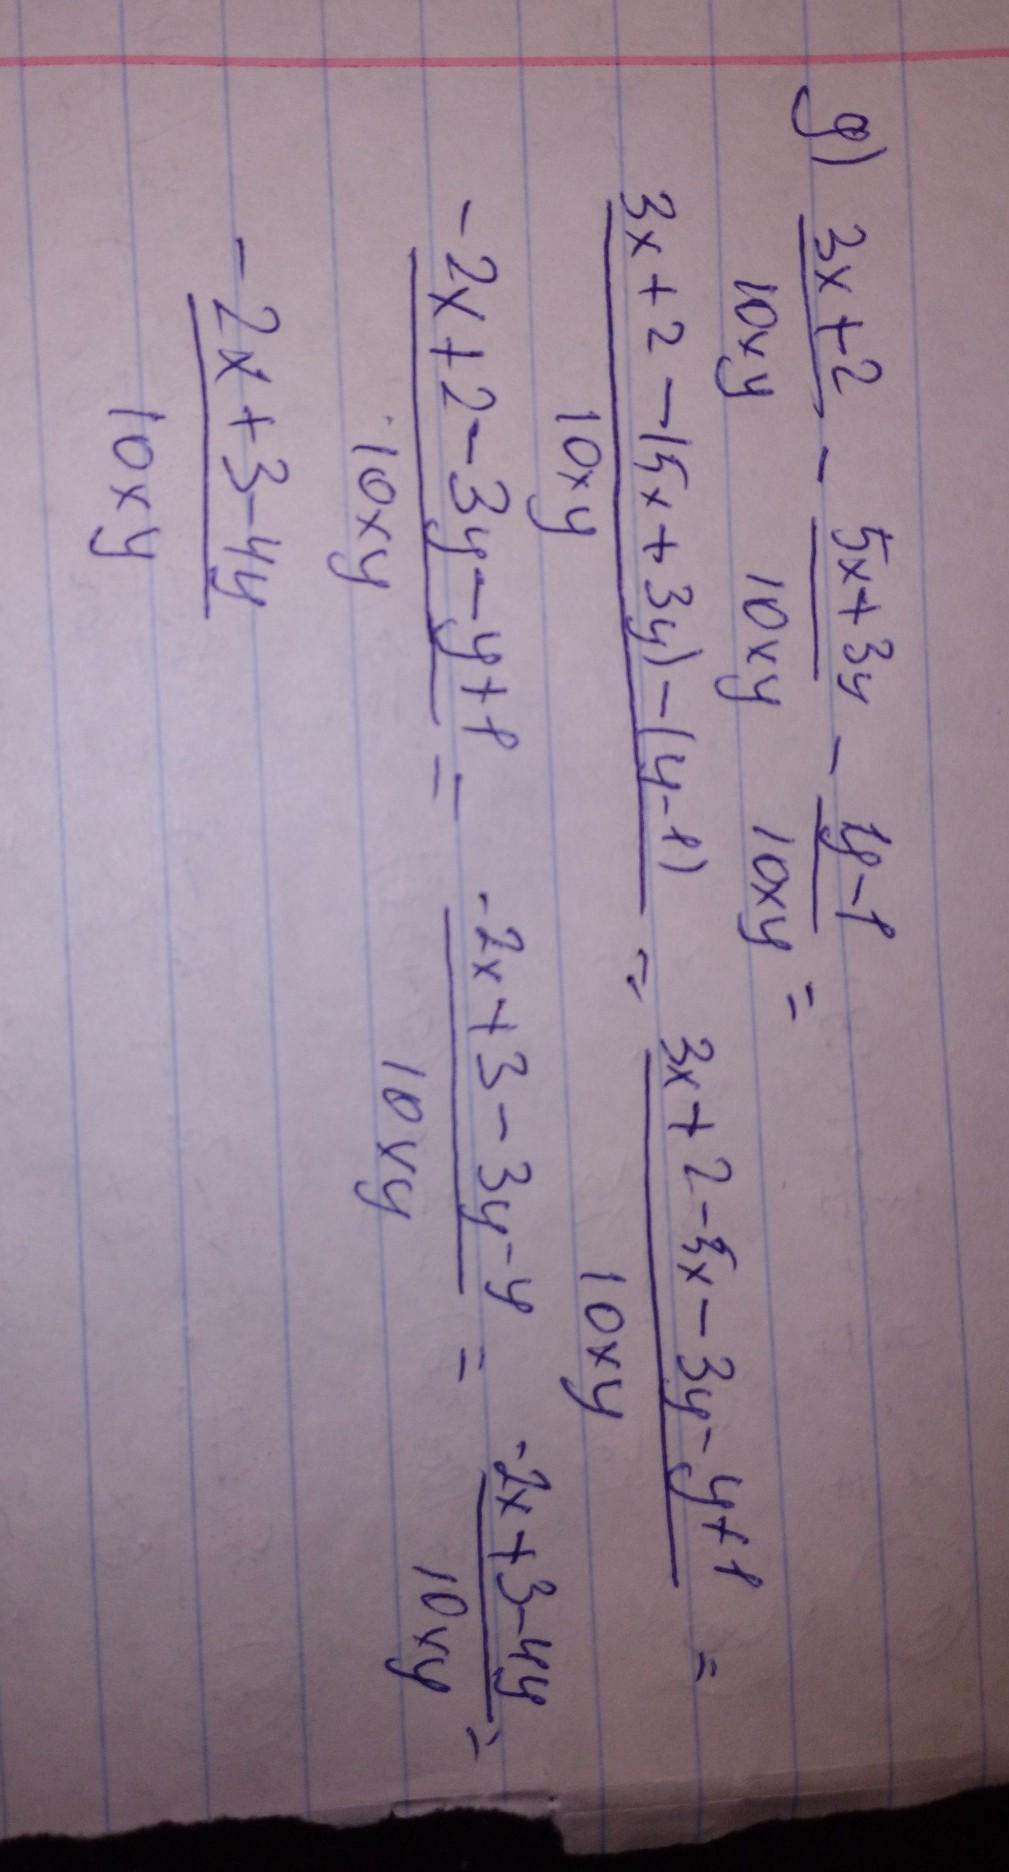 g) 3x+2 - 5x+3y - y-1 =
10xy 10xy 10xy
3x+2-(5x+3y)-(y-1) = 3x+2-5x-3y-y+1 =
10xy 10xy
-2x+2-3y-y+1 = -2x+3-3y-y = -2x+3-4y =
10xy 10xy 10xy
-2x+3-4y
10xy